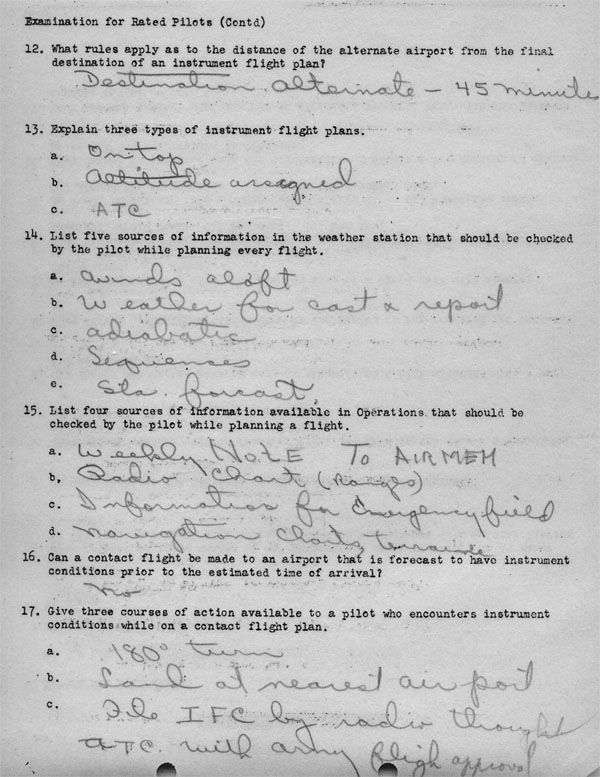 Examination for Rated Pilots (Contd)
12. What rules apply as to the distance of the alternate airport from the final
destination of an instrument flight plan?
Destination alternate - 45 minute
13. Explain three types of instrument flight plans.
a. On top
b. Altitude assigned
c. ATC
14. List five sources of information in the weather station that should be checked
by the pilot while planning every flight.
a. winds aloft
b. Weather for cast & report
c. adiabatic
d. Sequences
e. Sta. forcast.
15. List four sources of information available in Operations that should be
checked by the pilot while planning a flight.
a. Weekly NOTE TO AIRMEN
b, Radio Chart (Ranges)
c. Information for Emergency field
d. navigation Charts,
16. Can a contact flight be made to an airport that is forecast to have instrument
conditions prior to the estimated time of arrival?
No
17. Give three courses of action available to a pilot who encounters instrument
conditions while on a contact flight plan.
a. 180° turn
b. Land at nearest air port
c. File IFC by radio thought
ATC. with army fligh approval